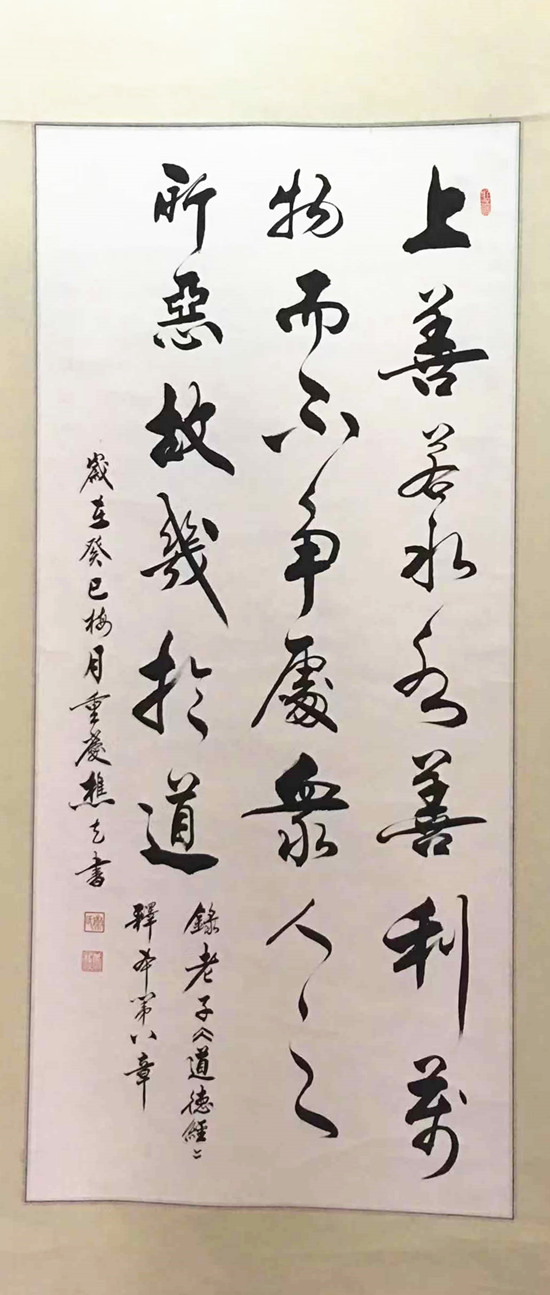 上善若水水善利萬
物而不争處衆人之
所惡故幾於道
錄老子《道德經》
釋第八章
歲在癸巳梅月重慶樵書